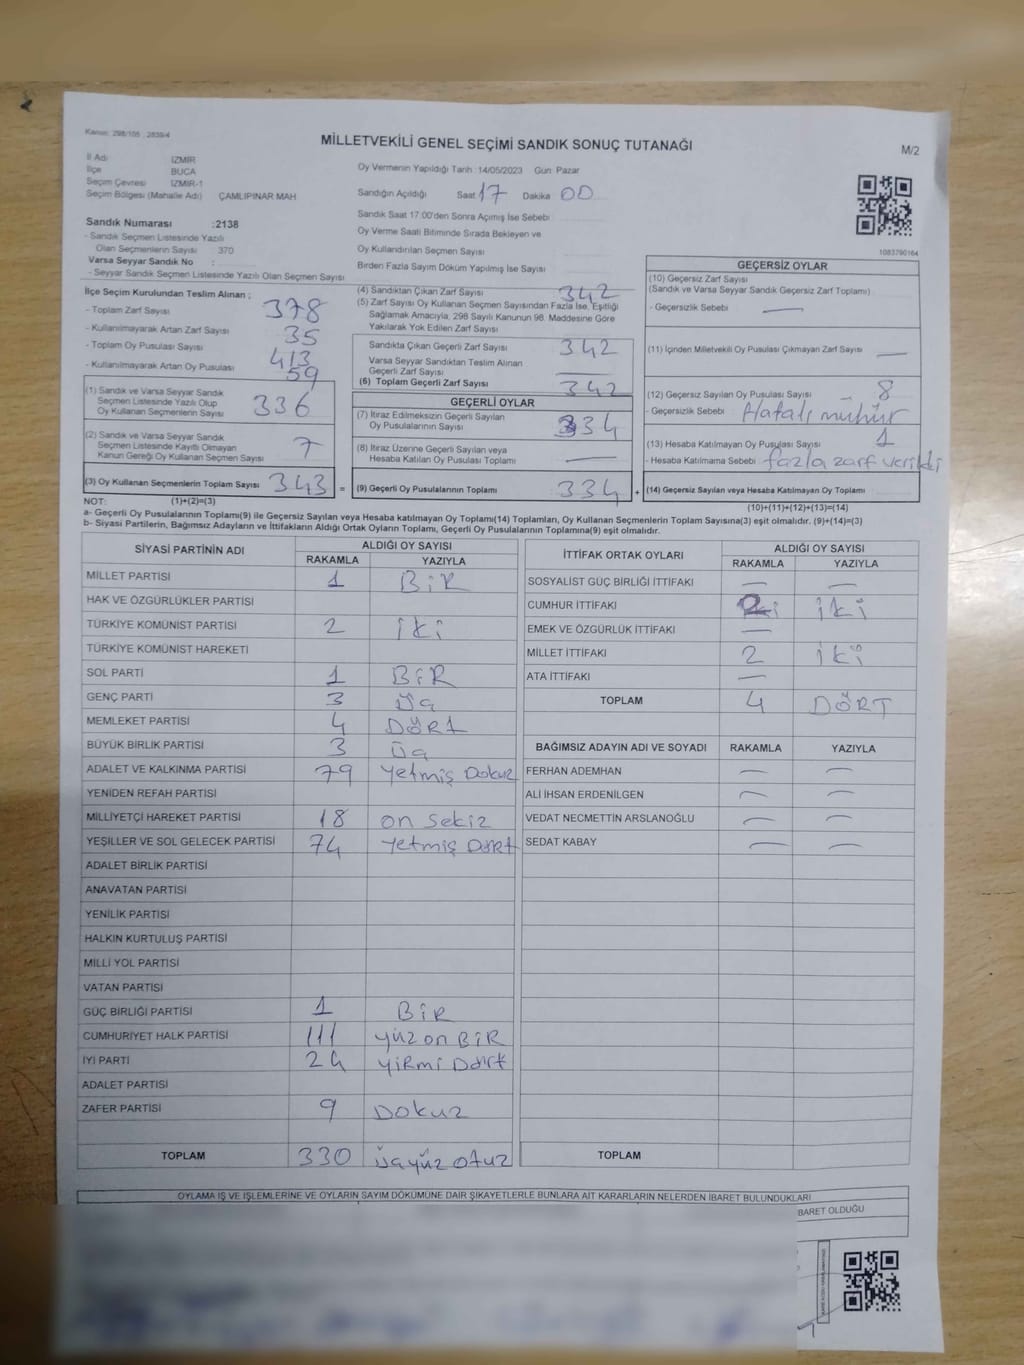 Kanun: 298/105 , 2839/4
MİLLETVEKİLİ GENEL SEÇİMİ SANDIK SONUÇ TUTANAĞI
M/2
İl Adı İZMİR
İlçe BUCA
Seçim Çevresi İZMİR-1
Seçim Bölgesi (Mahalle Adı) ÇAMLIPINAR MAH
Oy Vermenin Yapıldığı Tarih : 14/05/2023 Gün: Pazar
Sandığın Açıldığı Saat 17 Dakika 00
Sandık Saat 17:00'den Sonra Açılmış İse Sebebi
Oy Verme Saati Bitiminde Sırada Bekleyen ve
Oy Kullandırılan Seçmen Sayısı
Birden Fazla Sayım Döküm Yapılmış İse Sayısı
1083790164
Sandık Numarası :2138
- Sandık Seçmen Listesinde Yazılı
Olan Seçmenlerin Sayısı 370
Varsa Seyyar Sandık No :
- Seyyar Sandık Seçmen Listesinde Yazılı Olan Seçmen Sayısı
İlçe Seçim Kurulundan Teslim Alınan ;
- Toplam Zarf Sayısı 378
- Kullanılmayarak Artan Zarf Sayısı 35
- Toplam Oy Pusulası Sayısı 413
- Kullanılmayarak Artan Oy Pusulası 59
(1) Sandık ve Varsa Seyyar Sandık
Seçmen Listesinde Yazılı Olup
Oy Kullanan Seçmenlerin Sayısı 336
(2) Sandık ve Varsa Seyyar Sandık
Seçmen Listesinde Kayıtlı Olmayan
Kanun Gereği Oy Kullanan Seçmen Sayısı 7
(3) Oy Kullanan Seçmenlerin Toplam Sayısı 343 =
(4) Sandıktan Çıkan Zarf Sayısı 342
(5) Zarf Sayısı Oy Kullanan Seçmen Sayısından Fazla İse, Eşitliği
Sağlamak Amacıyla, 298 Sayılı Kanunun 98. Maddesine Göre
Yakılarak Yok Edilen Zarf Sayısı
Sandıkta Çıkan Geçerli Zarf Sayısı 342
Varsa Seyyar Sandıktan Teslim Alınan
Geçerli Zarf Sayısı
(6) Toplam Geçerli Zarf Sayısı 342
GEÇERLİ OYLAR
(7) İtiraz Edilmeksizin Geçerli Sayılan
Oy Pusulalarının Sayısı 334
(8) İtiraz Üzerine Geçerli Sayılan veya
Hesaba Katılan Oy Pusulası Toplamı —
(9) Geçerli Oy Pusulalarının Toplamı 334 +
GEÇERSİZ OYLAR
(10) Geçersiz Zarf Sayısı
(Sandık ve Varsa Seyyar Sandık Geçersiz Zarf Toplamı)
- Geçersizlik Sebebi —
(11) İçinden Milletvekili Oy Pusulası Çıkmayan Zarf Sayısı —
(12) Geçersiz Sayılan Oy Pusulası Sayısı 8
- Geçersizlik Sebebi Hatalı mühür
(13) Hesaba Katılmayan Oy Pusulası Sayısı 1
- Hesaba Katılmama Sebebi fazla zarf verildi
(14) Geçersiz Sayılan veya Hesaba Katılmayan Oy Toplamı
NOT: (1)+(2)=(3)
(10)+(11)+(12)+(13)=(14)
a- Geçerli Oy Pusulalarının Toplamı(9) ile Geçersiz Sayılan veya Hesaba katılmayan Oy Toplamı(14) Toplamları, Oy Kullanan Seçmenlerin Toplam Sayısına(3) eşit olmalıdır. (9)+(14)=(3)
b- Siyasi Partilerin, Bağımsız Adayların ve İttifakların Aldığı Ortak Oyların Toplamı, Geçerli Oy Pusulalarının Toplamına(9) eşit olmalıdır.
SİYASİ PARTİNİN ADI ALDIĞI OY SAYISI
RAKAMLA YAZIYLA
MİLLET PARTİSİ 1 BİR
HAK VE ÖZGÜRLÜKLER PARTİSİ
TÜRKİYE KOMÜNİST PARTİSİ 2 iki
TÜRKİYE KOMÜNİST HAREKETİ
SOL PARTİ 1 BİR
GENÇ PARTİ 3 üç
MEMLEKET PARTİSİ 4 DÖRT
BÜYÜK BİRLİK PARTİSİ 3 üç
ADALET VE KALKINMA PARTİSİ 79 yetmiş Dokuz
YENİDEN REFAH PARTİSİ
MİLLİYETÇİ HAREKET PARTİSİ 18 on sekiz
YEŞİLLER VE SOL GELECEK PARTİSİ 74 yetmiş Dört
ADALET BİRLİK PARTİSİ
ANAVATAN PARTİSİ
YENİLİK PARTİSİ
HALKIN KURTULUŞ PARTİSİ
MİLLİ YOL PARTİSİ
VATAN PARTİSİ
GÜÇ BİRLİĞİ PARTİSİ 1 BİR
CUMHURİYET HALK PARTİSİ 111 yüz on BİR
İYİ PARTİ 24 yirmi Dört
ADALET PARTİSİ
ZAFER PARTİSİ 9 DOKUZ
TOPLAM 330 üçyüz otuz
İTTİFAK ORTAK OYLARI ALDIĞI OY SAYISI
RAKAMLA YAZIYLA
SOSYALİST GÜÇ BİRLİĞİ İTTİFAKI — —
CUMHUR İTTİFAKI 2 iki
EMEK VE ÖZGÜRLÜK İTTİFAKI —
MİLLET İTTİFAKI 2 iki
ATA İTTİFAKI —
TOPLAM 4 DÖRT
BAĞIMSIZ ADAYIN ADI VE SOYADI RAKAMLA YAZIYLA
FERHAN ADEMHAN — —
ALİ İHSAN ERDENİLGEN — —
VEDAT NECMETTİN ARSLANOĞLU — —
SEDAT KABAY — —
TOPLAM
OYLAMA İŞ VE İŞLEMLERİNE VE OYLARIN SAYIM DÖKÜMÜNE DAİR ŞİKAYETLERLE BUNLARA AİT KARARLARIN NELERDEN İBARET BULUNDUKLARI
BARET OLDUĞU